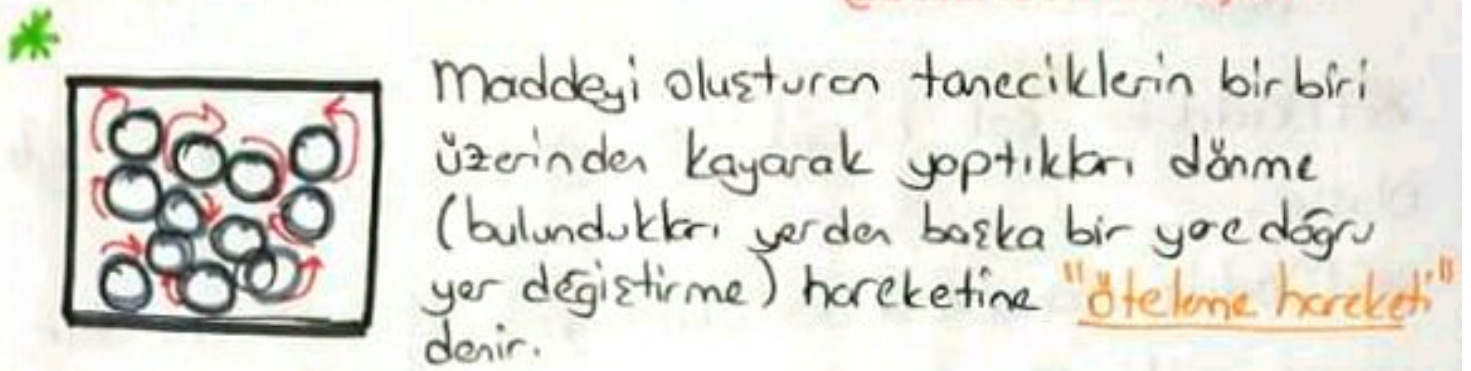 Maddeyi oluşturan taneciklerin birbiri
üzerinden kayarak yaptıkları dönme
(bulundukları yerden başka bir yere doğru
yer değiştirme) hareketine "öteleme hareketi"
denir.